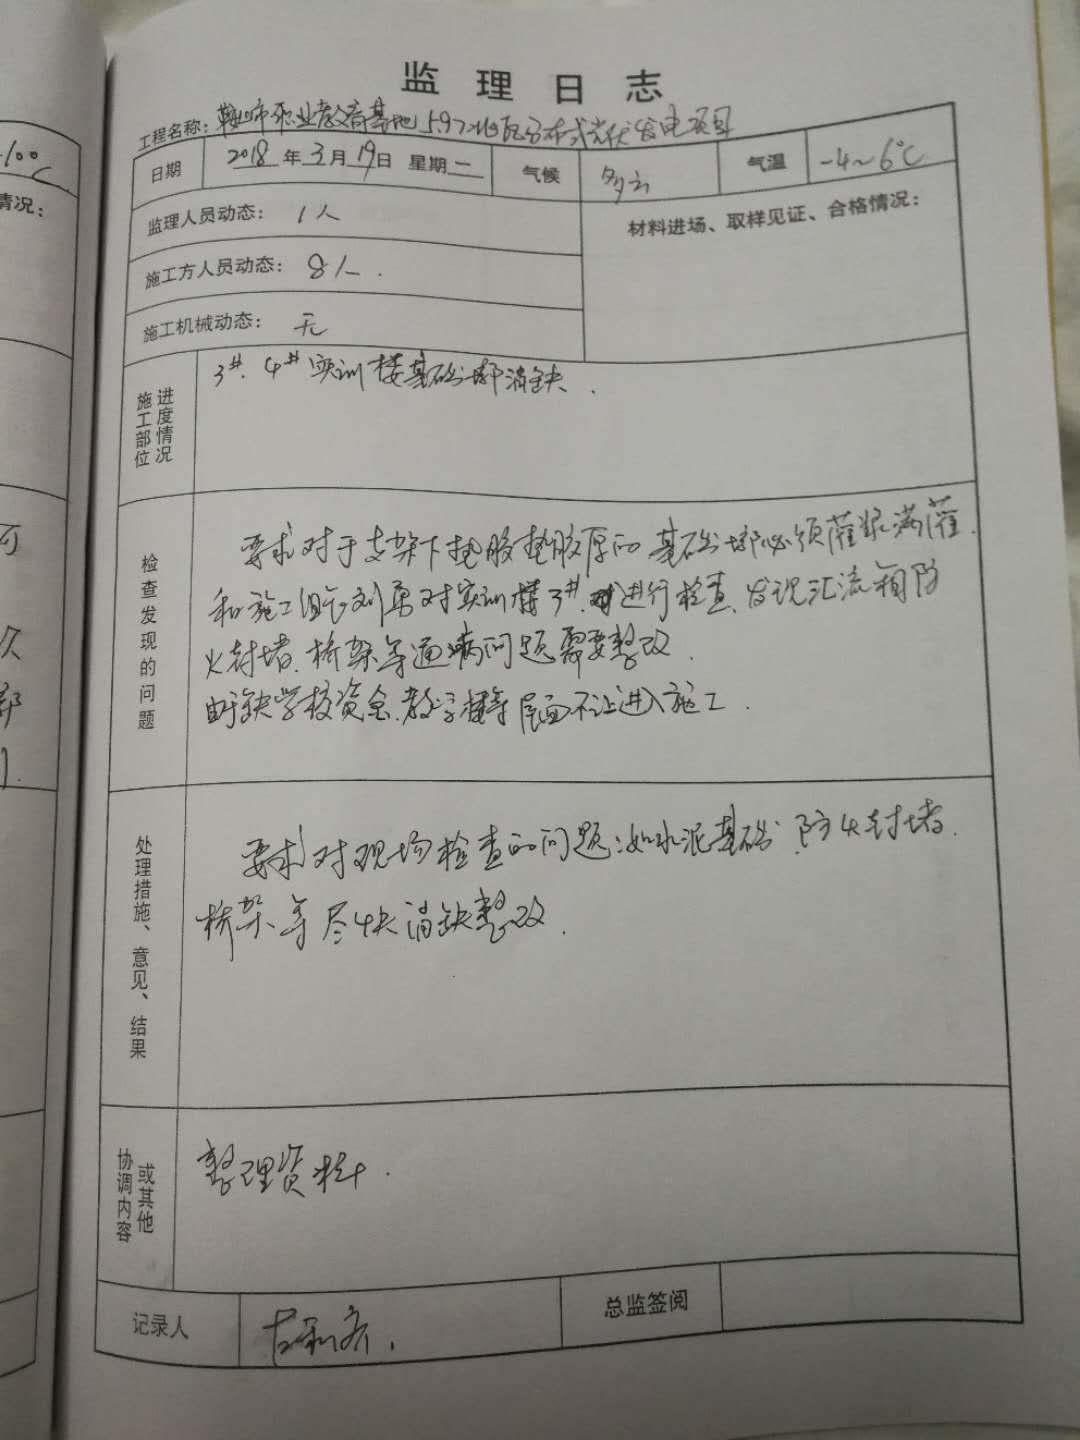 监理日志
工程名称：鞍山市职业教育基地5.97兆瓦分布式光伏发电项目
日期 2018年3月19日 星期一 气候 多云 气温 -4~6℃
监理人员动态： 1人
材料进场、取样见证、合格情况：
施工方人员动态： 8人.
施工机械动态： 无
施工部位 进度情况
3#、4#实训楼基础墩消缺.
检查发现的问题
要求对于支架下垫胶垫胶厚的基础墩必须灌浆满灌.
和施工组长刘勇对实训楼3#、进行检查、发现汇流箱防
火封堵、桥架等通病问题需要整改.
由于缺学校资金、教学楼等屋面不让进入施工.
处理措施、意见、结果
要求对现场检查的问题:如水泥基础、防火封堵.
桥架等尽快消缺整改.
协调内容 或其他
整理资料.
记录人
总监签阅
-10℃
情况：